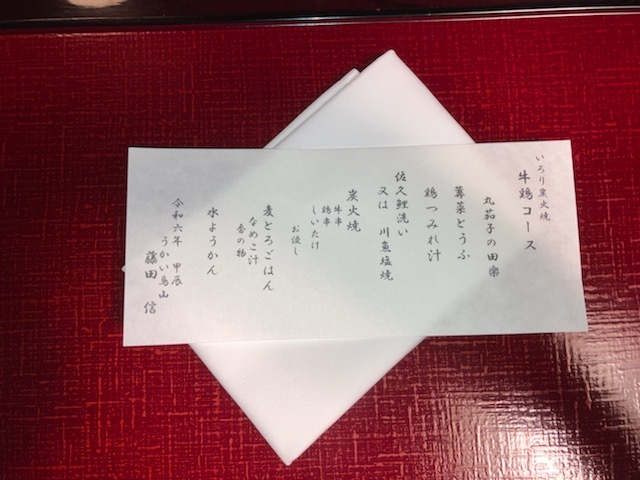 いろり炭火焼
牛鶏コース
丸茄子の田楽
蓴菜とうふ
鶏つみれ汁
佐久鯉洗い
又は 川魚塩焼
炭火焼
牛串
鶏串
しいたけ
お凌し
麦とろごはん
なめこ汁
香の物
水ようかん
令和六年 甲辰
うかい鳥山
藤田 信